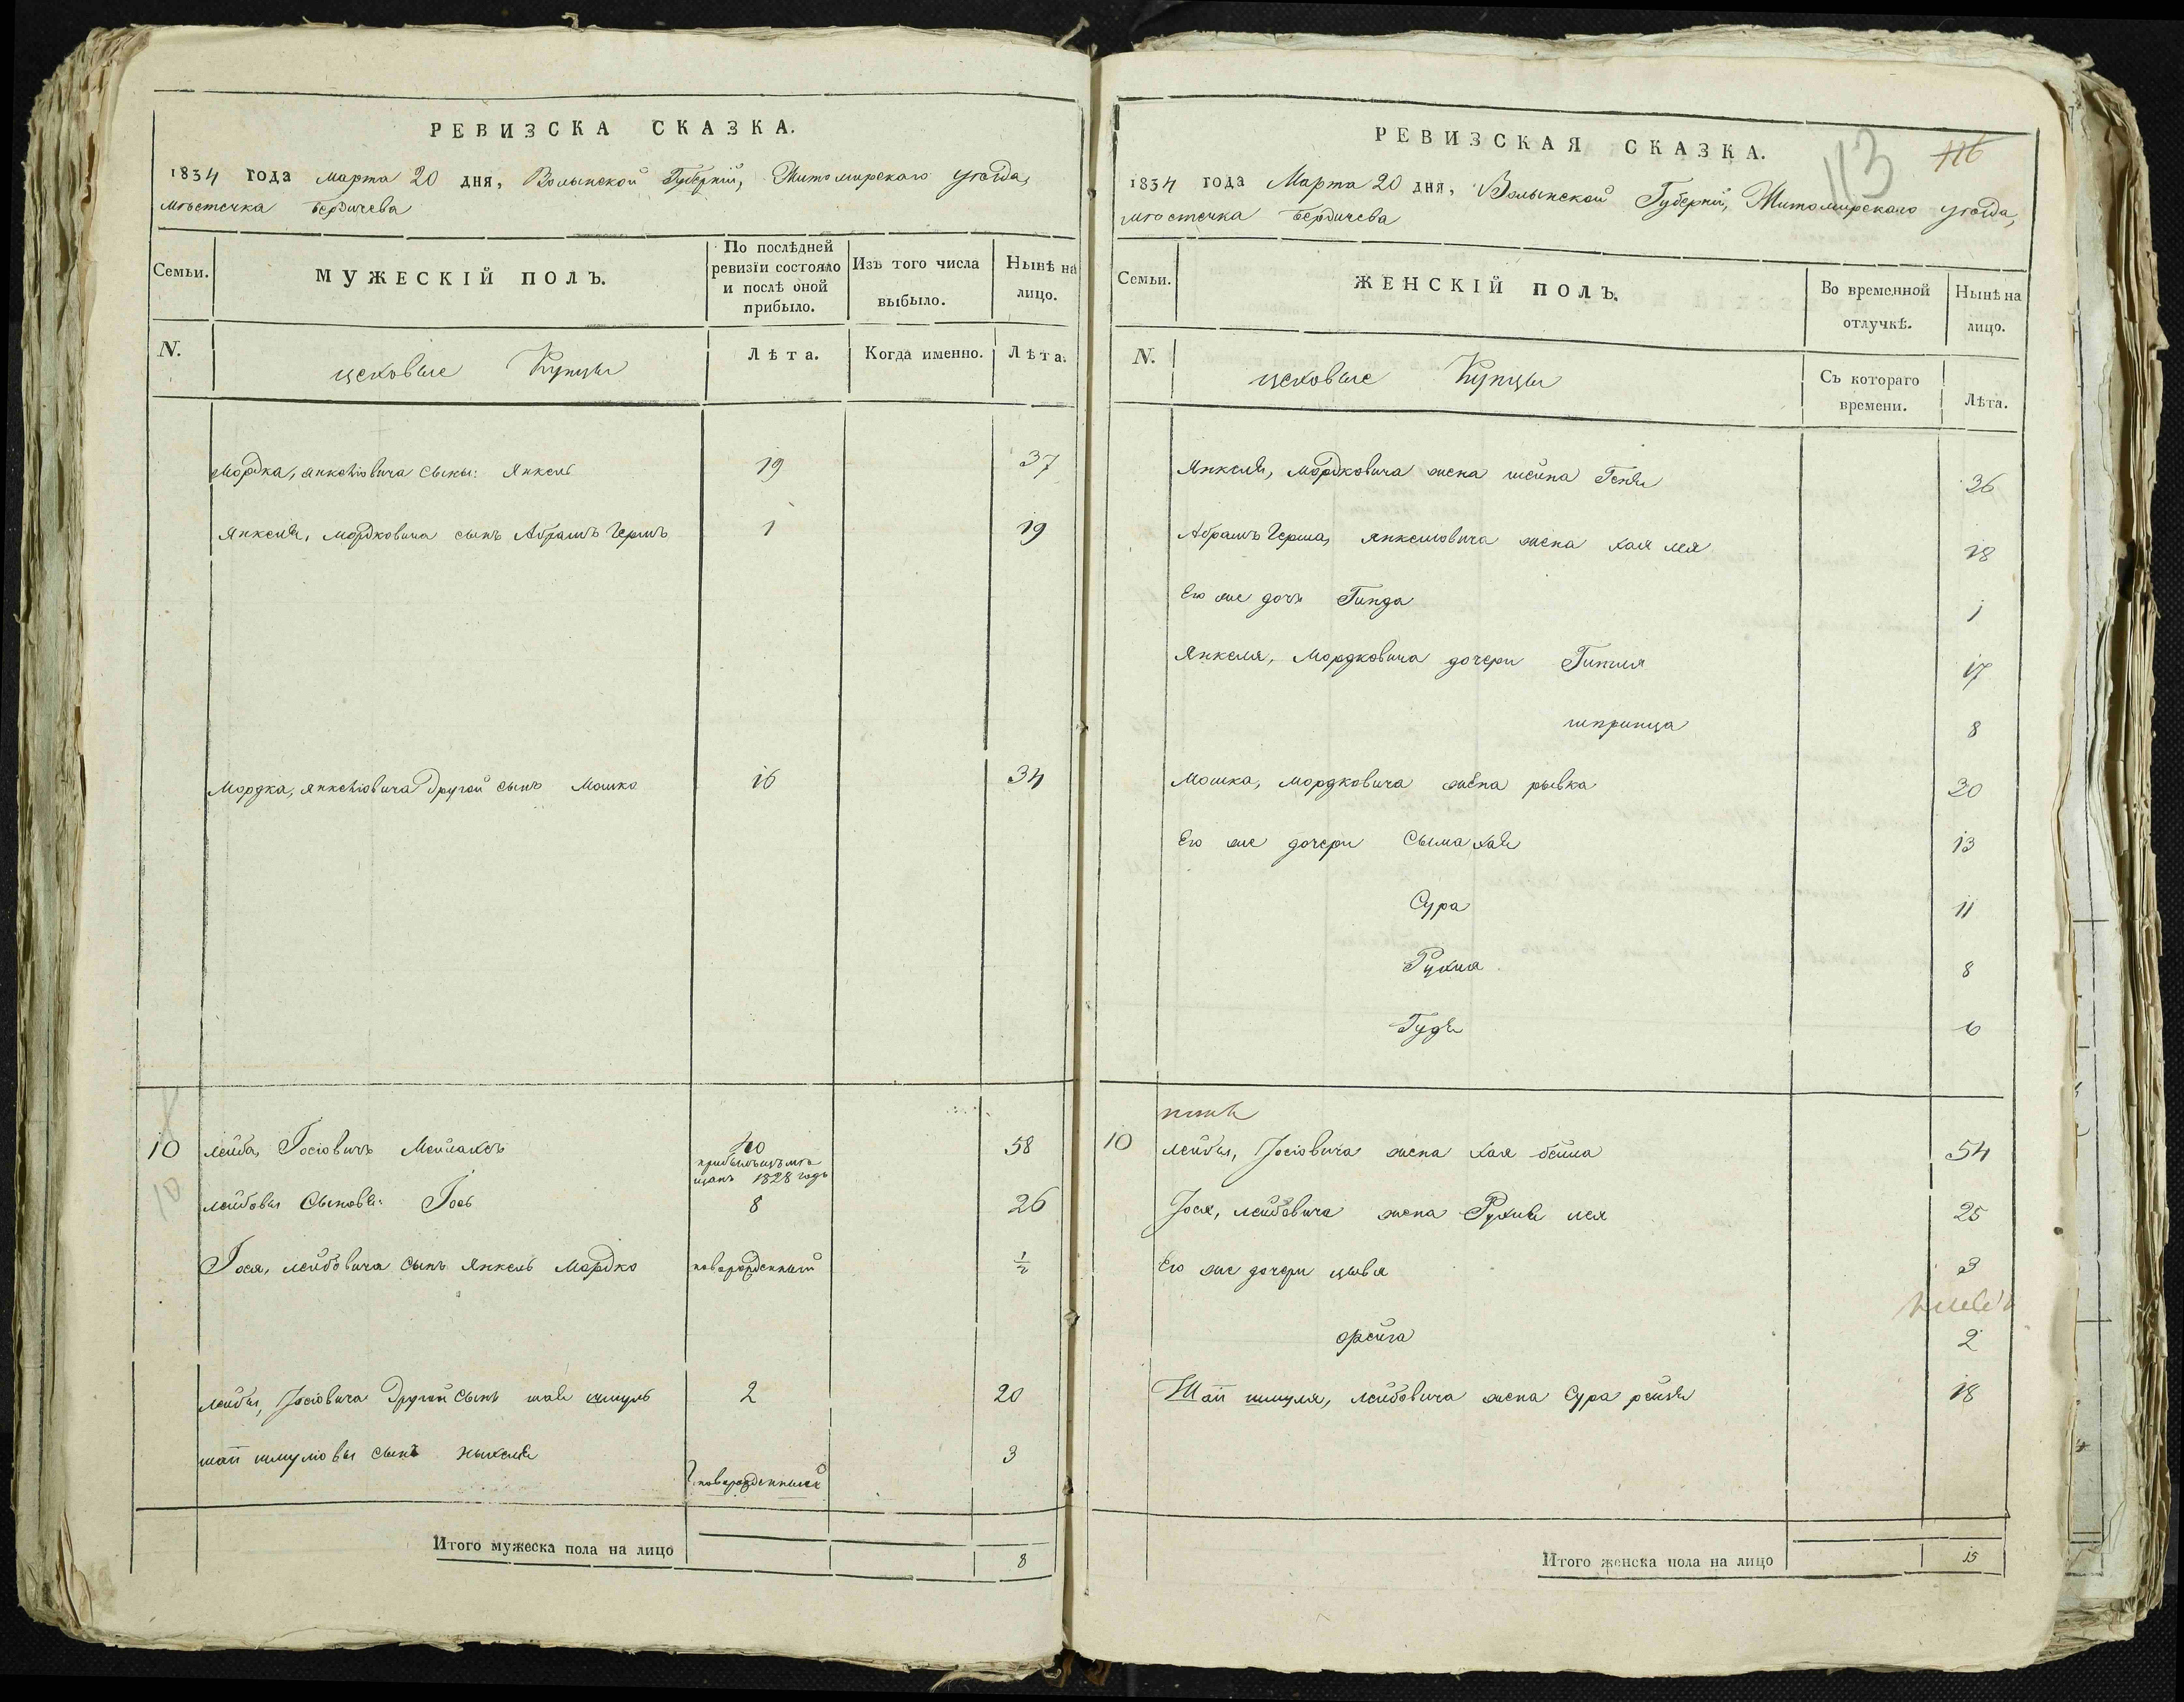 РЕВИЗСКА СКАЗКА.
1834 года марта 20 дня, Волынской Губернїи, Житомирскаго уѣзда,
мѣстечка Бердичева
Семьи.
МУЖЕСКІЙ ПОЛЪ.
По послѣдней
ревизїи состояло
и послѣ оной
прибыло.
Изъ того числа
выбыло.
Нынѣ на
лицо.
N.
цеховые Купцы
Лѣта.
Когда именно.
Лѣта.
Мордка, Янкелiовича сыны: Янкель 19 37
Янкеля, мордковича сынъ Абрамъ Гершъ 1 19
Мордка, янкелiовича другой сынъ Мошко 16 34
10 лейба Iосiовичъ 40 58
1828 годъ
10
лейбовы сыновья: Iось 8 26
Iося, лейбовича сынъ Янкель Мордко новорожденный ½
лейбы, Iосiовича другой сынъ шая шмуль 2 20
шаи шмулiовы сынъ 3
новорожденный
Итого мужеска пола на лицо 8
РЕВИЗСКАЯ СКАЗКА.
113
116
1834 года Марта 20 дня, Волынской Губернїи, Житомирскаго уѣзда,
мѣстечка Бердичева
Семьи.
ЖЕНСКІЙ ПОЛЪ.
Во временной
отлучкѣ.
Нынѣ на
лицо.
N.
цеховые Купцы
Съ котораго
времени.
Лѣта.
Янкеля, мордковича жена шейна Геня 36
Абрамъ Герша, янкелiовича жена хая лея 18
Его же дочь Гинда 1
Янкеля, Мордковича дочери 17
шпринца 8
Мошка, мордковича жена рывка 30
Его же дочери Сыма хая 13
Сура 11
Рухля 8
Гудя 6
10 лейбы, Iосiовича жена хая бейла 54
Iося, лейбовича жена Рухля лея 25
Его же дочери цывя 3
фейга 2
Шаи шмуля, лейбовича жена Сура рейзя 18
Итого женска пола на лицо 15